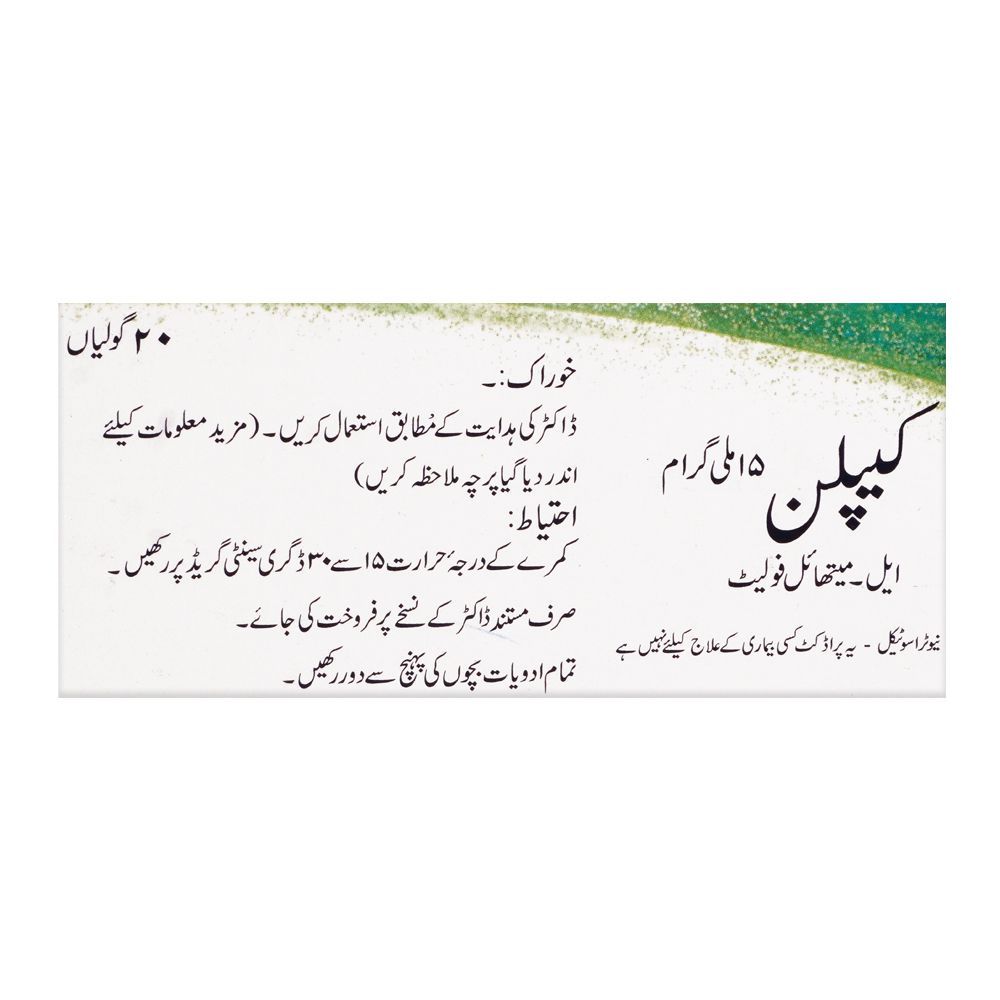 ۲۰ گولیاں
کیپلن ۱۵ ملی گرام
ایل۔میتھائل فولیٹ
نیوٹراسوٹیکل - یہ پراڈکٹ کسی بیماری کے علاج کیلئے نہیں ہے
خوراک:۔
ڈاکٹر کی ہدایت کے مُطابق استعمال کریں۔ (مزید معلومات کیلئے
اندر دیا گیا پرچہ ملاحظہ کریں)
احتیاط:
کمرے کے درجۂ حرارت ۱۵ سے ۳۰ ڈگری سینٹی گریڈ پر رکھیں۔
صرف مستند ڈاکٹر کے نسخے پر فروخت کی جائے۔
تمام ادویات بچوں کی پہنچ سے دور رکھیں۔